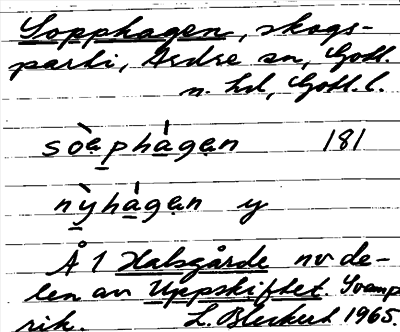 Sopphagen, skogs-
parti, Ardre sn, Gotl.
n. hd, Gotl. l.
sòəphágən 181
nỳhágən y
Å 1 Halsgårde nv de-
len av Uppskiftet. Svamp
rik. L. Bleckert 1965.